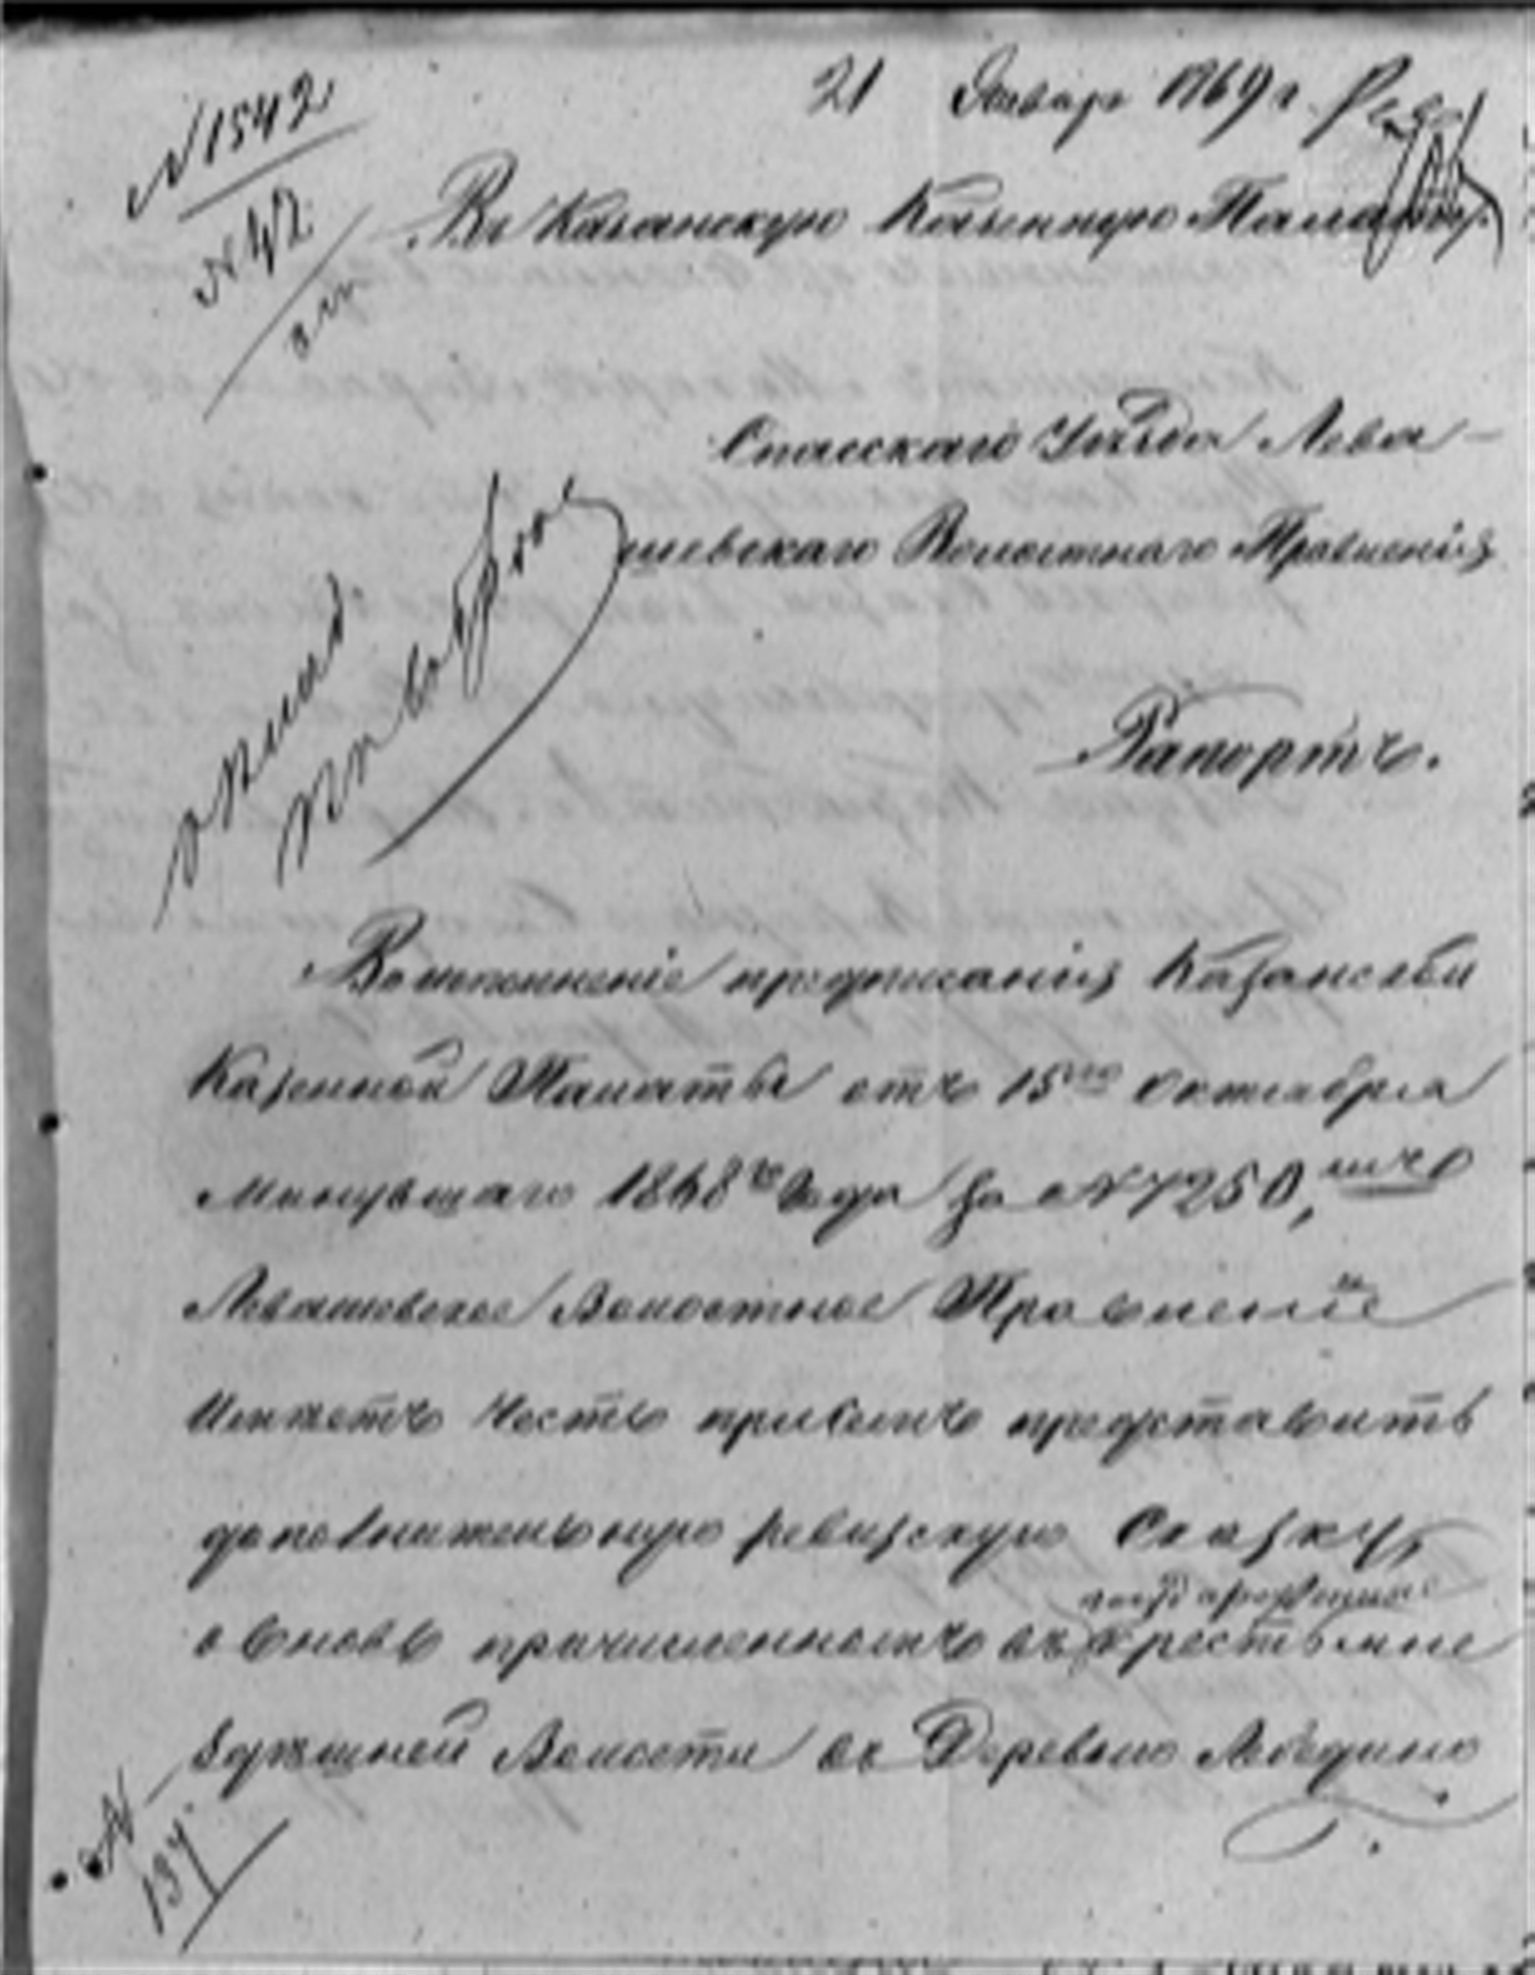 № 1542
21 Январ 1869 г.
№ 42
Въ Казанскую Казенную Палату.
Спасскаго Уѣзда Лева-
шевскаго Волостнаго Правленія
Рапортъ.
Во исполненіе предписанія Казанской
Казенной Палаты отъ 15го Октября
Минувшаго 1868го Года за № 7250,
Левашевское Волостное Правленіе
Имѣетъ Честь присемъ представить
дополнительную ревизскую Сказку,
о вновь причисленномъ въ крестьяне
здѣшней Волости въ Деревню Лебедино
№
137.